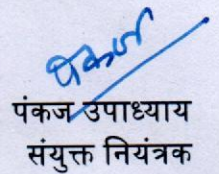 पंकज
पंकज उपाध्याय
संयुक्त नियंत्रक